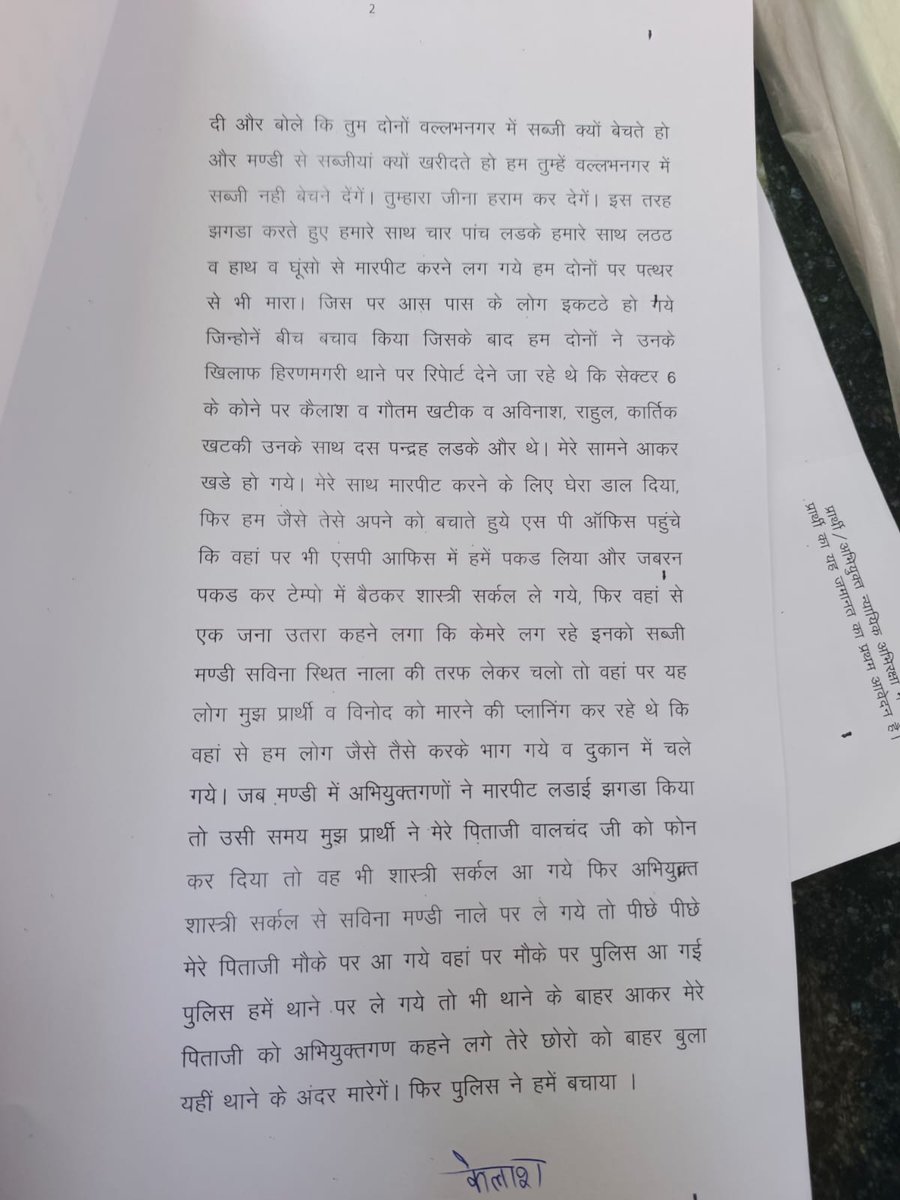 2
दी और बोले कि तुम दोनों वल्लभनगर में सब्जी क्यों बेचते हो
और मण्डी से सब्जीयां क्यों खरीदते हो हम तुम्हें वल्लभनगर में
सब्जी नही बेचने देंगें। तुम्हारा जीना हराम कर देगें। इस तरह
झगडा करते हुए हमारे साथ चार पांच लडके हमारे साथ लठठ
व हाथ व घूंसो से मारपीट करने लग गये हम दोनों पर पत्थर
से भी मारा। जिस पर आस पास के लोग इकटठे हो गये
जिन्होनें बीच बचाव किया जिसके बाद हम दोनों ने उनके
खिलाफ हिरणमगरी थाने पर रिपेार्ट देने जा रहे थे कि सेक्टर 6
के कोने पर कैलाश व गौतम खटीक व अविनाश, राहुल, कार्तिक
खटकी उनके साथ दस पन्द्रह लडके और थे। मेरे सामने आकर
खडे हो गये। मेरे साथ मारपीट करने के लिए घेरा डाल दिया,
फिर हम जैसे तेसे अपने को बचाते हुये एस पी ऑफिस पहुंचे
कि वहां पर भी एसपी आफिस में हमें पकड लिया और जबरन
पकड कर टेम्पो में बैठकर शास्त्री सर्कल ले गये, फिर वहां से
एक जना उतरा कहने लगा कि केमरे लग रहे इनको सब्जी
मण्डी सविना स्थित नाला की तरफ लेकर चलो तो वहां पर यह
लोग मुझ प्रार्थी व विनोद को मारने की प्लानिंग कर रहे थे कि
वहां से हम लोग जैसे तैसे करके भाग गये व दुकान में चले
गये। जब मण्डी में अभियुक्तगणों ने मारपीट लडाई झगडा किया
तो उसी समय मुझ प्रार्थी ने मेरे पिताजी वालचंद जी को फोन
कर दिया तो वह भी शास्त्री सर्कल आ गये फिर अभियुक्त
शास्त्री सर्कल से सविना मण्डी नाले पर ले गये तो पीछे पीछे
मेरे पिताजी मौके पर आ गये वहां पर मौके पर पुलिस आ गई
पुलिस हमें थाने पर ले गये तो भी थाने के बाहर आकर मेरे
पिताजी को अभियुक्तगण कहने लगे तेरे छोरो को बाहर बुला
यहीं थाने के अंदर मारेगें। फिर पुलिस ने हमें बचाया ।
कैलाश
प्रार्थी/अभियुक्त न्यायिक अभिरक्षा में
प्रार्थी का यह जमानत का प्रथम आवेदन है।